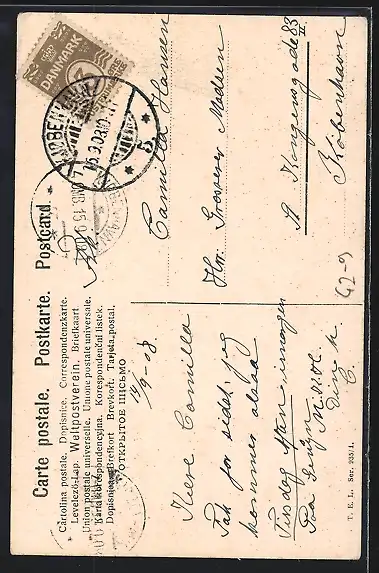 Carte postale. Postkarte. Postcard.
Cartolina postale. Dopisnice. Correspondenzkarte.
Levelező-Lap. Weltpostverein. Briefkaart
Union postale universelle. Unione postale universale.
Karta korespondencyjna. Korespondenční lístek.
Dopisnica. Brefkort. Brevkort. Tarjeta postal.
ОТКРЫТОЕ ПИСЬМО
DANMARK
KJØBENHAVN
14/9-08
Kære Camilla
Tak for sidst, jeg
kommer altsaa
Tirsdag Aften
Paa
Din
C.
Camilla Hansen
Hr. Grosserer Madsen
St Kongensgade 83
II
København
42-9
T. E. L. Ser. 935/1.